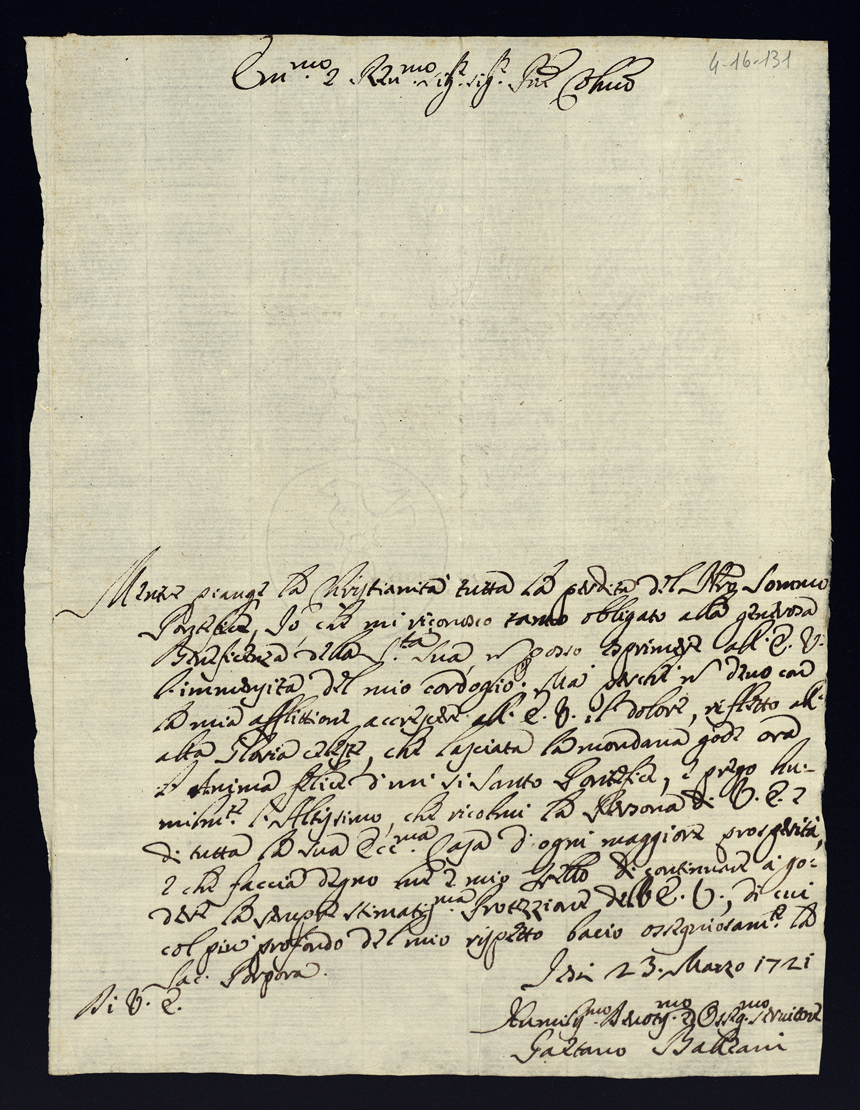 4-16-131
Em.mo e R.mo Sig.r Sig.r Pne Colmo
Mentre piange la Cristianità tutta la perdita del Nro Sommo
Pontefice, Io, che mi riconosco tanto obligato alla generosa
Beneficenza della S.tà Sua, n posso esprimere all' E. V.
l'immensità del mio cordoglio. Ma perchè n devo con
la mia afflittione accrescere all' E. V. il dolore, rifletto all'
alta Gloria celeste, che lasciata la mondana gode ora
l'Anima felice d'un si Santo Pontefice, e prego hu-
milm.te l'Altissimo, che ricolmi la Persona di V. E. e
di tutta la sua Ecc.ma Casa d'ogni maggiore prosperità,
e che faccia degno me e mio di continuare a go-
dere la sempre stimatis.ma Protezzione dell' E. V., di cui
col più profondo del mio rispetto bacio ossequiosam.te la
Sac. Porpora.
Jesi 23. Marzo 1721
Di V. E.
Humiliss.mo Devotis.mo et Osseq.mo Servitore
Gaetano Balleani